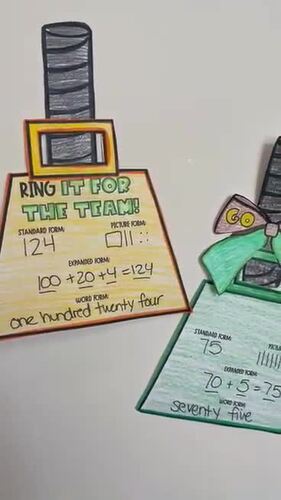 RING IT FOR
THE TEAM!
STANDARD FORM: PICTURE FORM:
124
EXPANDED FORM:
100 + 20 + 4 = 124
WORD FORM:
one hundred twenty four
GO
STANDARD FORM:
75
EXPANDED FORM:
70 + 5 = 75
WORD FORM:
seventy five